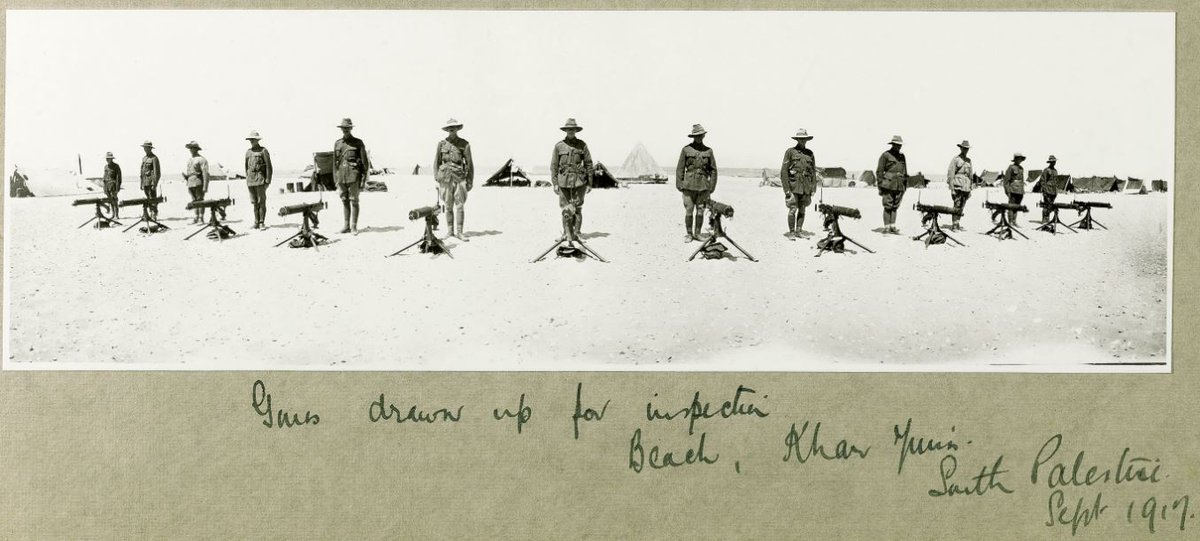 Guns drawn up for inspection
Beach, Khan Yunis.
South Palestine.
Sept 1917.